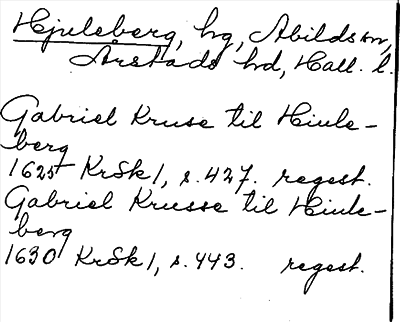 Hjuleberg, hg, Abilds sn,
Årstads hd, Hall. l.
Gabriel Kruse til Hiule-
berg
1625 KrSk 1, s. 427. regest.
Gabriel Krusse til Hiule-
berg
1630 KrSk 1, s. 443. regest.